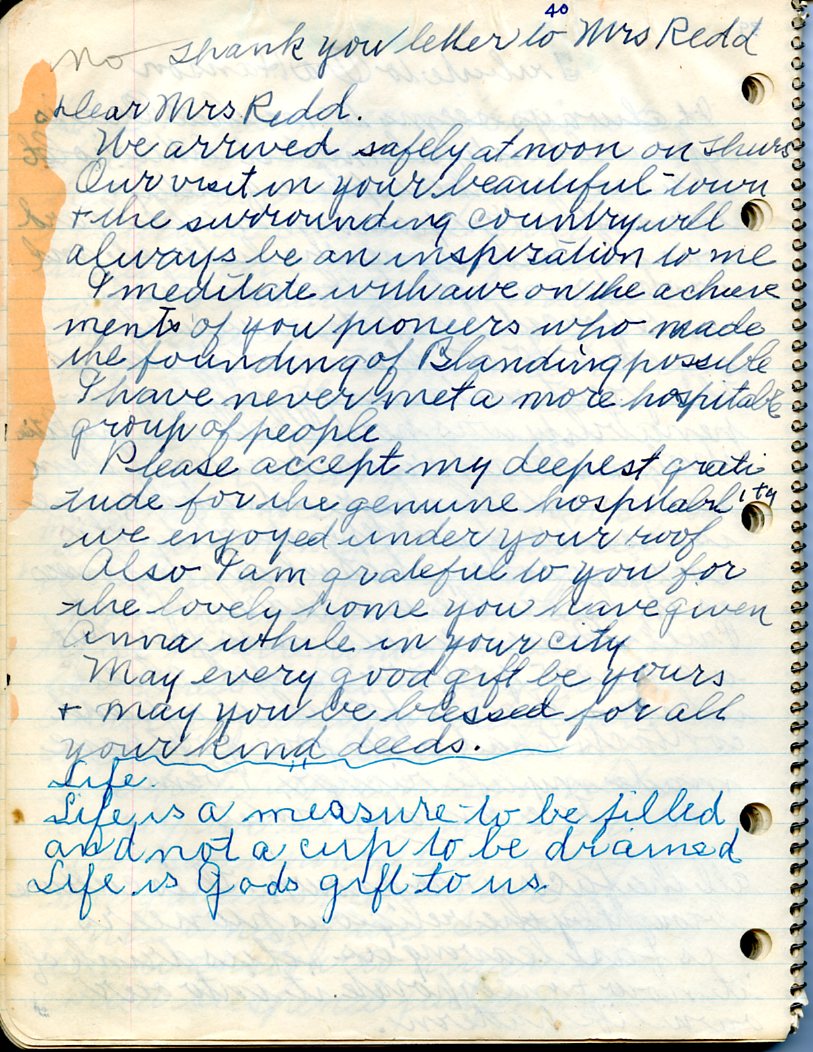 40
No Thank you letter to Mrs Redd
Dear Mrs. Redd.
We arrived safely at noon on Thurs
Our visit in your beautiful town
+ the surrounding country will
always be an inspiration to me
I meditate with awe on the achieve
ments of you pioneers who made
the founding of Blanding possible
I have never met a more hospitable
group of people
Please accept my deepest grati
tude for the genuine hospitality
we enjoyed under your roof
Also I am grateful to you for
the lovely home you have given
Anna while in your city
May every good gift be yours
+ may you be blessed for all
your kind deeds.
Life.
Life is a measure to be filled
and not a cup to be drained
Life is Gods gift to us.